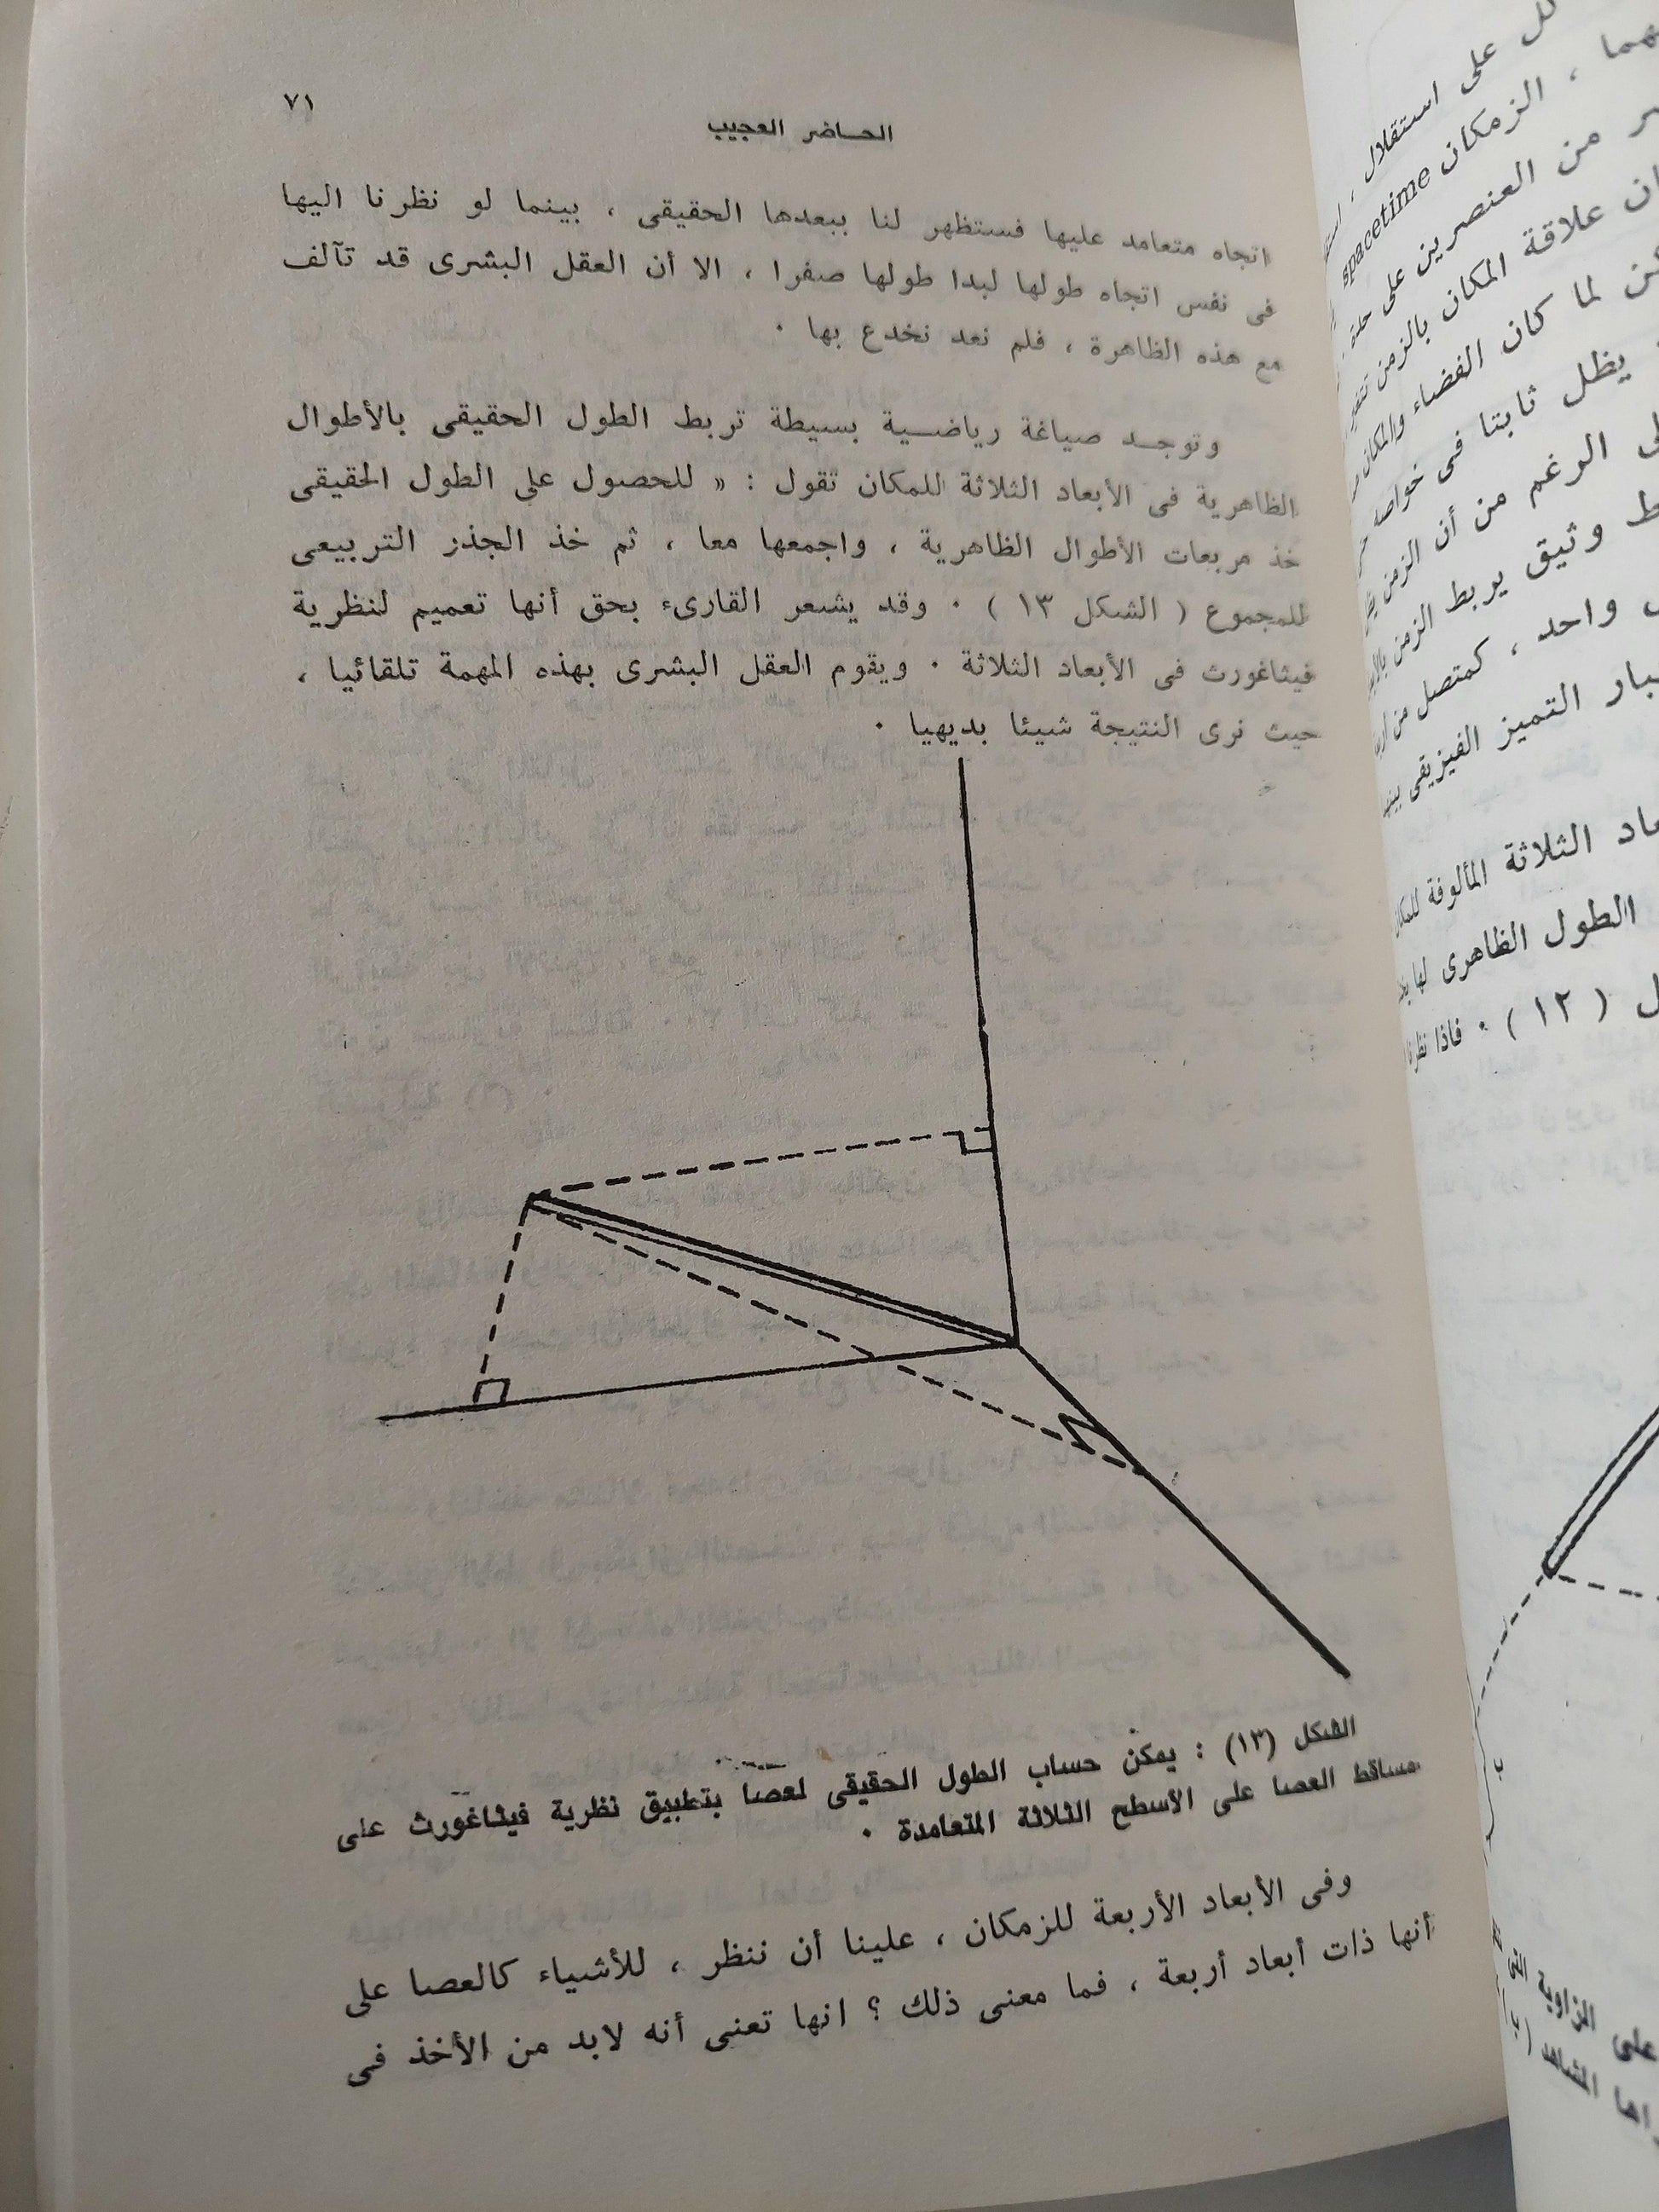 ٧١
الحاضر العجيب
اتجاه متعامد عليها فستظهر لنا ببعدها الحقيقى ، بينما لو نظرنا اليها
فى نفس اتجاه طولها لبدا طولها صفرا ، الا أن العقل البشرى قد تآلف
مع هذه الظاهرة ، فلم نعد نخدع بها ٠
وتوجد صياغة رياضية بسيطة تربط الطول الحقيقى بالأطوال
الظاهرية فى الأبعاد الثلاثة للمكان تقول : « للحصول على الطول الحقيقى
خذ مربعات الأطوال الظاهرية ، واجمعها معا ، ثم خذ الجذر التربيعى
للمجموع ( الشكل ١٣ ) ٠ وقد يشعر القارىء بحق أنها تعميم لنظرية
فيثاغورث فى الأبعاد الثلاثة ٠ ويقوم العقل البشرى بهذه المهمة تلقائيا ،
حيث نرى النتيجة شيئا بديهيا ٠
الشكل (١٣) : يمكن حساب الطول الحقيقى لعصا بتطبيق نظرية فيثاغورث على
مساقط العصا على الأسطح الثلاثة المتعامدة ٠
وفى الأبعاد الأربعة للزمكان ، علينا أن ننظر ، للأشياء كالعصا على
أنها ذات أبعاد أربعة ، فما معنى ذلك ؟ انها تعنى أنه لابد من الأخذ فى
على استقلال ،
، الزمكان spacetime
من العنصرين على
علاقة المكان بالزمن
لما كان الفضاء والمكان
يظل ثابتا فى خواصه
الرغم من أن الزمن
وثيق يربط الزمن
واحد ، كمتصل من
التميز الفيزيقى
الثلاثة المألوفة
الطول الظاهرى لها
( ١٢ ) ٠ فاذا نظرنا
ب
على الزاوية التى
المشاهد ( ب )